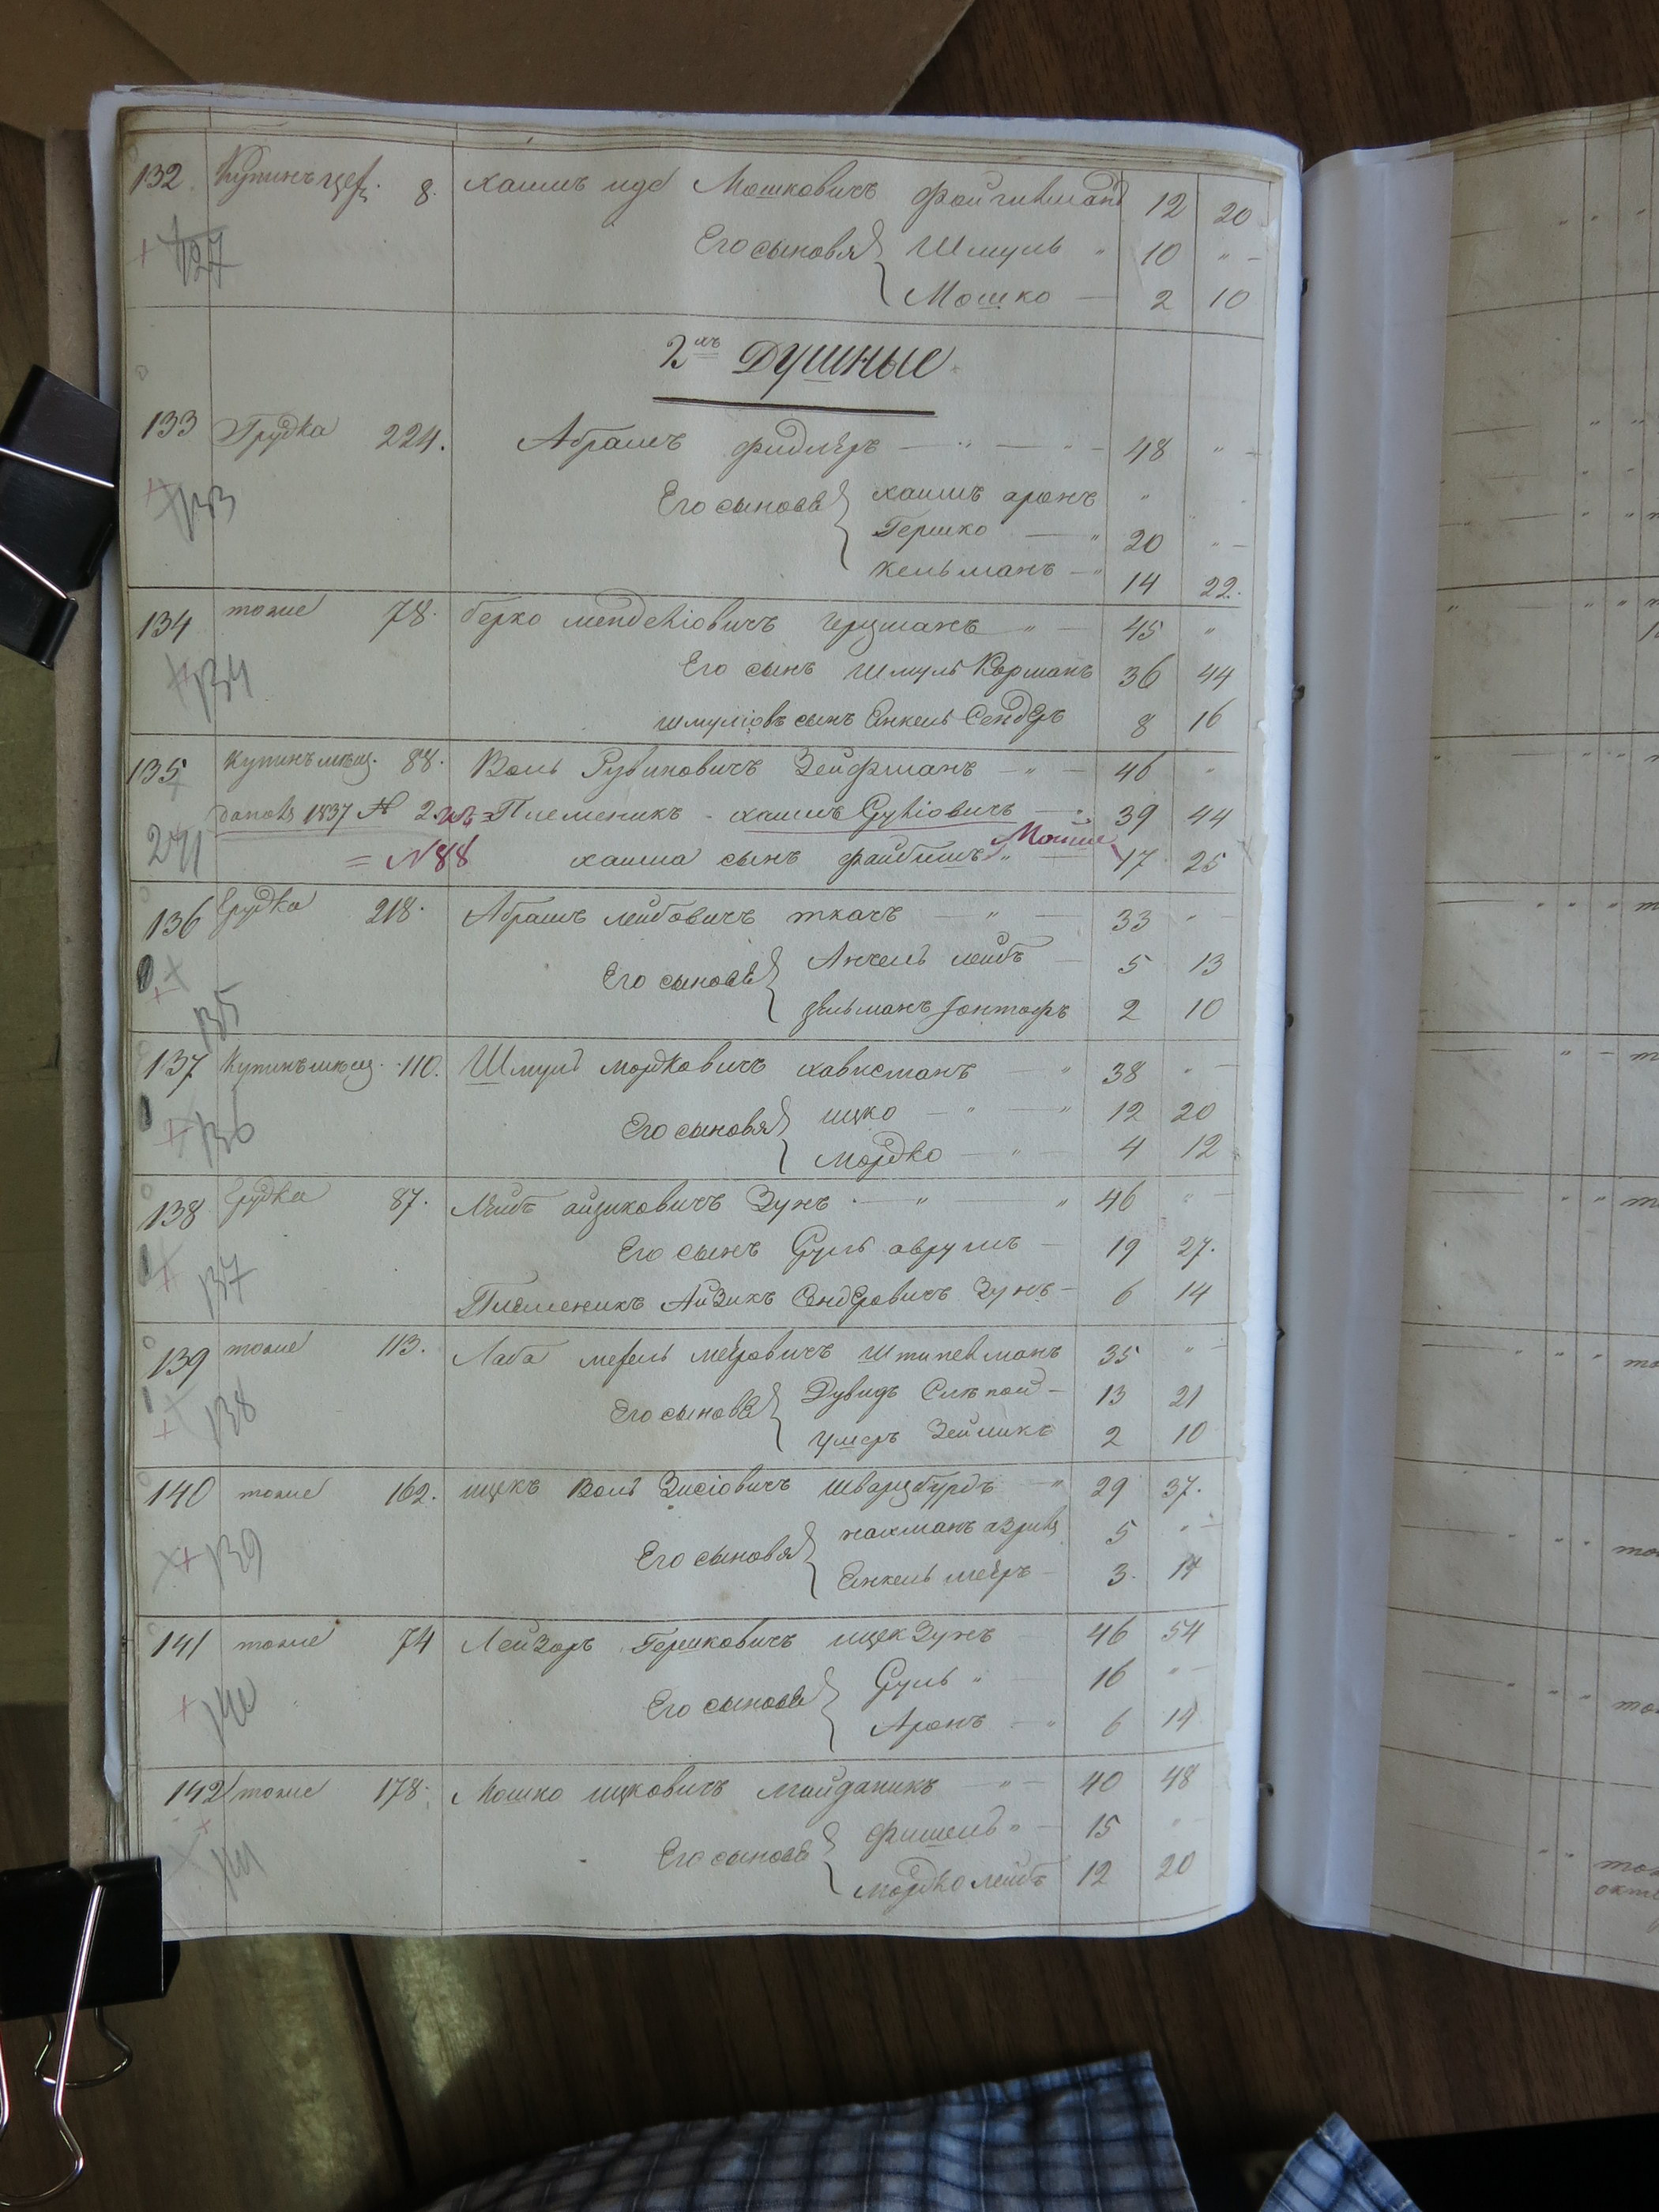 132 Купинъ 8. Хаимъ Мошковичъ 12 20
127 Его сыновя Шмуль 10
Мошко 2 10
2хъ Душные
133 Грудка 224. Абрамъ Фидлеръ 48
133 Его сыновя Хаимъ Аронъ
Гершко 20
Кельманъ 14 22.
134 тоже 78. Берко Менделіовичъ Герцманъ 45
134 Его сынъ Шмуль Корманъ 36 44
Шмуліовъ сынъ Янкель Сендеръ 8 16
135 Купинъ мѣщ. 88. Воль Рувиновичъ Зейфманъ 46
1837 № 2. Племеникъ Хаимъ Сруліовичъ 39 44
271 = N 88 Хаима сынъ Файбишъ Мошко 17 25
136 Грудка 218. Абрамъ Лейбовичъ Ткачъ 33
Его сыновя Анчель Лейбъ 5 13
135 Зельманъ 2 10
137 Купинъ мѣщ. 110. Шмуль Мордковичъ 38
136 Его сыновя Ицко 12 20
Мордко 4 12
138 Грудка 87. Лейбъ Айзиковичъ Зунъ 46
137 Его сынъ Сруль Аврумъ 19 27.
Племеникъ Айзикъ Сендеровичъ Зунъ 6 14
139 тоже 113. Лаба Мееровичъ Штипельманъ 35
138 Его сыновя Дувидъ 13 21
Ушеръ Зейликъ 2 10
140 тоже 162. Ицкъ Воль Зисіовичъ Шварцбурдъ 29 37.
139 Его сыновя Нахманъ 5
Янкель Мееръ 3. 14
141 тоже 74 Лейзоръ Гершковичъ Ицек Зунъ 46 54
140 Его сыновя Сруль 16
Аронъ 6 14
142 тоже 178. Мошко Ицковичъ Майданикъ 40 48
141 Его сыновя Фишель 15
Мордко Лейбъ 12 20